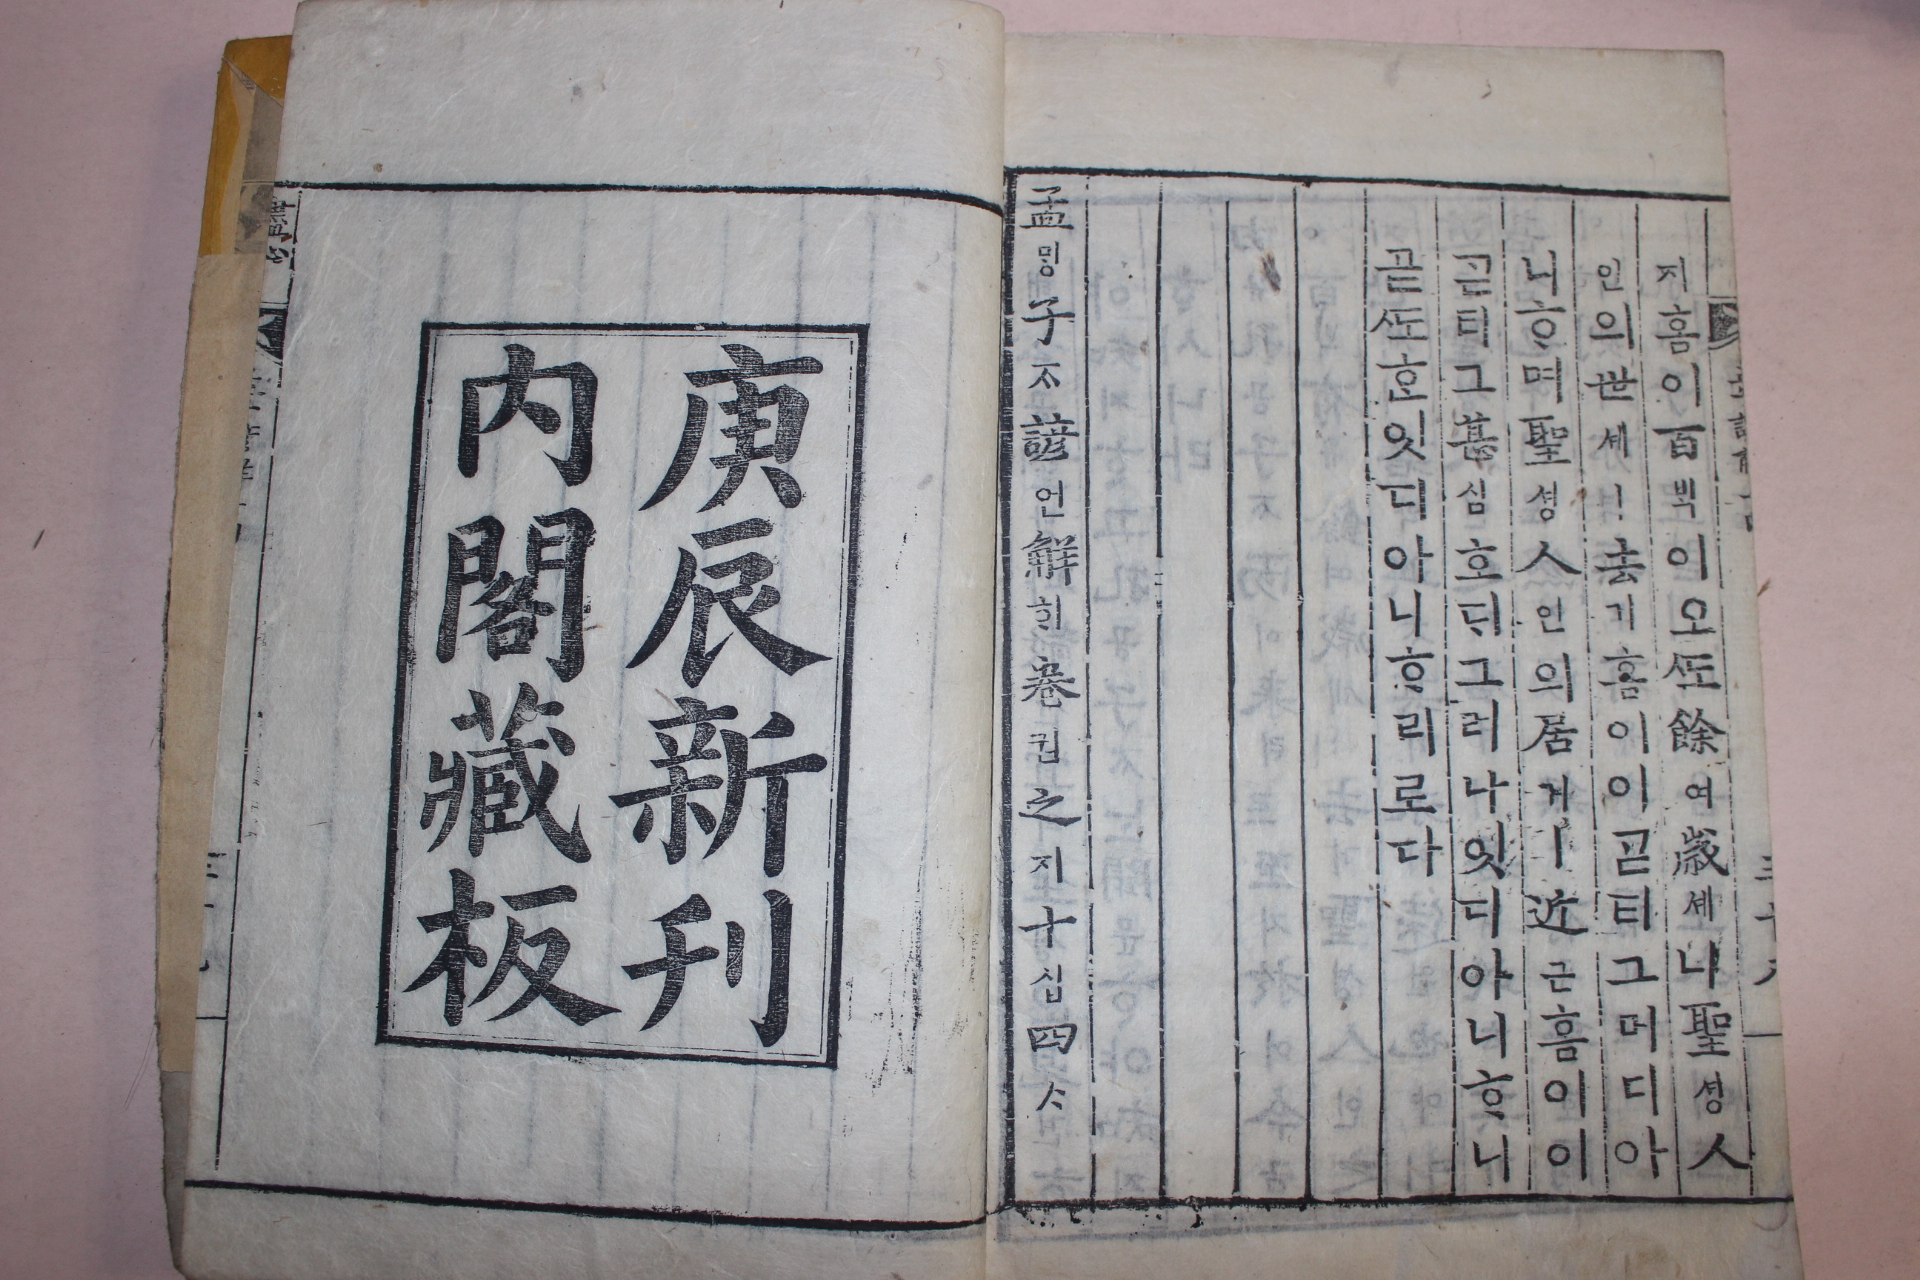 지홈이百ᄇᆡᆨ이오ᄯᅩ餘여歲셰나聖셩人
인의世셰ㅣ去거홈이이ᄀᆞᆮ티그머디아
니ᄒᆞ며聖셩人인의居거ㅣ近근홈이이
ᄀᆞᆮ티그甚심호ᄃᆡ그러나잇디아니ᄒᆞ니
곧ᄯᅩᄒᆞᆫ잇디아니ᄒᆞ리로다
孟ᄆᆡᆼ子ᄌᆞ諺언解ᄒᆡ卷권之지十십四ᄉᆞ
庚辰新刊
內閣藏板